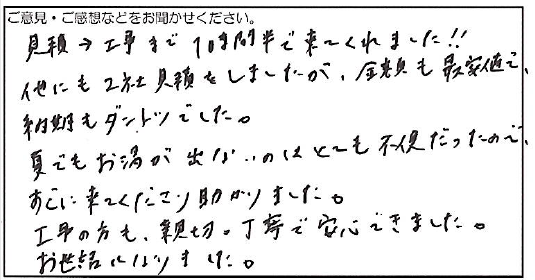 ご意見・ご感想などをお聞かせください。
見積→工事まで1時間半で来てくれました!!
他にも2社見積をしましたが、金額も最安値で、
納期もダントツでした。
夏でもお湯が出ないのはとても不便だったので、
すぐに来てくださり助かりました。
工事の方も、親切。丁寧で安心できました。
お世話になりました。